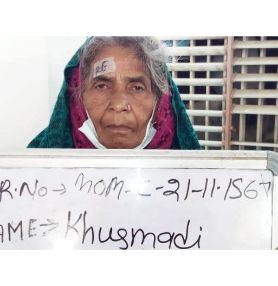 R.No→ MOM-C-21-11-1567
AME:→ Khusmadi